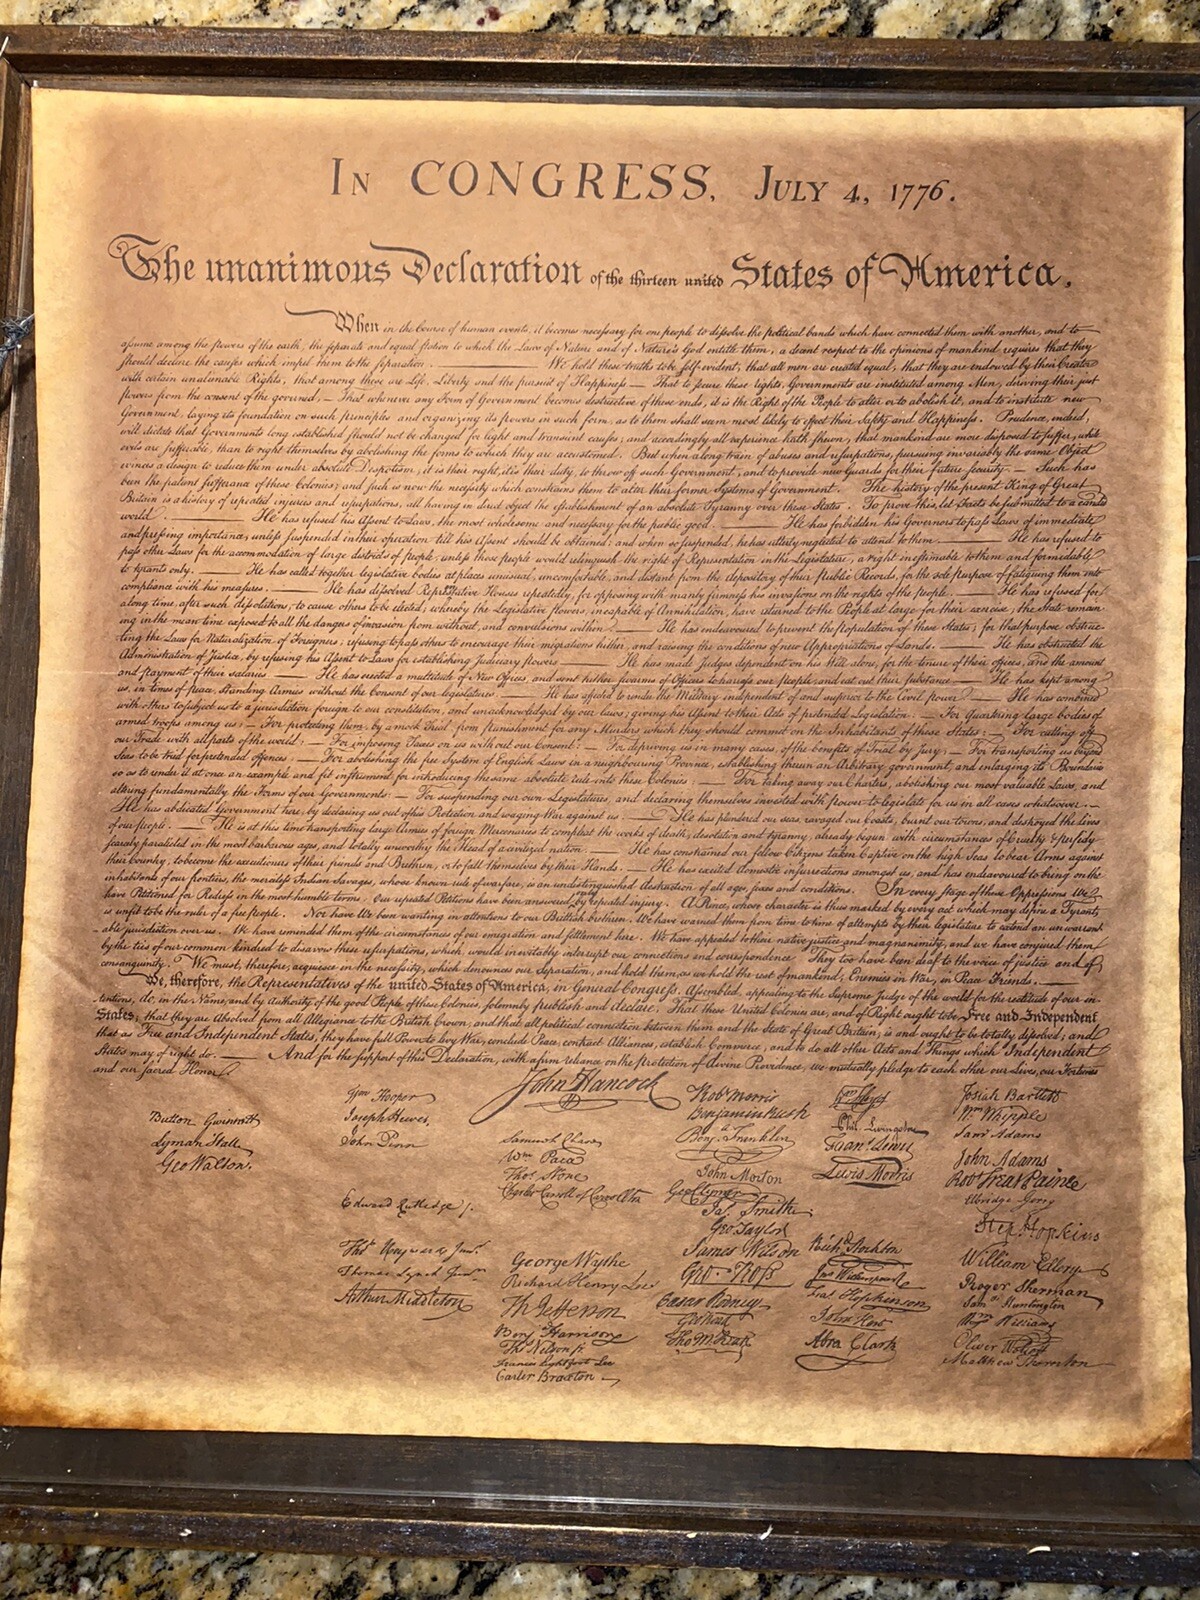 IN CONGRESS, JULY 4, 1776.
The unanimous Declaration of the thirteen united States of America.
When in the Course of human events, it becomes necessary for one people to dissolve the political bands which have connected them with another, and to
assume among the powers of the earth, the separate and equal station to which the Laws of Nature and of Nature's God entitle them, a decent respect to the opinions of mankind requires that they
should declare the causes which impel them to the separation. We hold these truths to be self-evident, that all men are created equal, that they are endowed by their Creator
with certain unalienable Rights, that among these are Life, Liberty and the pursuit of Happiness — That to secure these rights, Governments are instituted among Men, deriving their just
powers from the consent of the governed, — That whenever any Form of Government becomes destructive of these ends, it is the Right of the People to alter or to abolish it, and to institute new
Government, laying its foundation on such principles and organizing its powers in such form, as to them shall seem most likely to effect their Safety and Happiness. Prudence, indeed,
will dictate that Governments long established should not be changed for light and transient causes; and accordingly all experience hath shewn, that mankind are more disposed to suffer, while
evils are sufferable, than to right themselves by abolishing the forms to which they are accustomed. But when a long train of abuses and usurpations, pursuing invariably the same Object
evinces a design to reduce them under absolute Despotism, it is their right, it is their duty, to throw off such Government, and to provide new Guards for their future security. — Such has
been the patient sufferance of these Colonies; and such is now the necessity which constrains them to alter their former Systems of Government. The history of the present King of Great
Britain is a history of repeated injuries and usurpations, all having in direct object the establishment of an absolute Tyranny over these States. To prove this, let Facts be submitted to a candid
world. He has refused his Assent to Laws, the most wholesome and necessary for the public good. He has forbidden his Governors to pass Laws of immediate
and pressing importance, unless suspended in their operation till his Assent should be obtained; and when so suspended, he has utterly neglected to attend to them. He has refused to
pass other Laws for the accommodation of large districts of people, unless those people would relinquish the right of Representation in the Legislature, a right inestimable to them and formidable
to tyrants only. He has called together legislative bodies at places unusual, uncomfortable, and distant from the depository of their Public Records, for the sole purpose of fatiguing them into
compliance with his measures. He has dissolved Representative Houses repeatedly, for opposing with manly firmness his invasions on the rights of the people. He has refused for
a long time, after such dissolutions, to cause others to be elected; whereby the Legislative powers, incapable of Annihilation, have returned to the People at large for their exercise; the State remain-
ing in the mean time exposed to all the dangers of invasion from without, and convulsions within. He has endeavoured to prevent the population of these States; for that purpose obstruc-
ting the Laws for Naturalization of Foreigners; refusing to pass others to encourage their migrations hither, and raising the conditions of new Appropriations of Lands. He has obstructed the
Administration of Justice, by refusing his Assent to Laws for establishing Judiciary powers. He has made Judges dependent on his Will alone, for the tenure of their offices, and the amount
and payment of their salaries. He has erected a multitude of New Offices, and sent hither swarms of Officers to harrass our people, and eat out their substance. He has kept among
us, in times of peace, Standing Armies without the Consent of our legislatures. He has affected to render the Military independent of and superior to the Civil power. He has combined
with others to subject us to a jurisdiction foreign to our constitution, and unacknowledged by our laws; giving his Assent to their Acts of pretended Legislation: — For Quartering large bodies of
armed troops among us: — For protecting them, by a mock Trial, from punishment for any Murders which they should commit on the Inhabitants of these States: — For cutting off
our Trade with all parts of the world: — For imposing Taxes on us without our Consent: — For depriving us in many cases, of the benefits of Trial by Jury: — For transporting us beyond
Seas to be tried for pretended offences — For abolishing the free System of English Laws in a neighbouring Province, establishing therein an Arbitrary government, and enlarging its Boundaries
so as to render it at once an example and fit instrument for introducing the same absolute rule into these Colonies: — For taking away our Charters, abolishing our most valuable Laws, and
altering fundamentally the Forms of our Governments: — For suspending our own Legislatures, and declaring themselves invested with power to legislate for us in all cases whatsoever. —
He has abdicated Government here, by declaring us out of his Protection and waging War against us. He has plundered our seas, ravaged our Coasts, burnt our towns, and destroyed the lives
of our people. — He is at this time transporting large Armies of foreign Mercenaries to compleat the works of death, desolation and tyranny, already begun with circumstances of Cruelty & perfidy
scarcely paralleled in the most barbarous ages, and totally unworthy the Head of a civilized nation. He has constrained our fellow Citizens taken Captive on the high Seas to bear Arms against
their Country, to become the executioners of their friends and Brethren, or to fall themselves by their Hands. He has excited domestic insurrections amongst us, and has endeavoured to bring on the
inhabitants of our frontiers, the merciless Indian Savages, whose known rule of warfare, is an undistinguished destruction of all ages, sexes and conditions. In every stage of these Oppressions We
have Petitioned for Redress in the most humble terms: Our repeated Petitions have been answered only by repeated injury. A Prince, whose character is thus marked by every act which may define a Tyrant,
is unfit to be the ruler of a free people. Nor have We been wanting in attentions to our Brittish brethren. We have warned them from time to time of attempts by their legislature to extend an unwarrant-
able jurisdiction over us. We have reminded them of the circumstances of our emigration and settlement here. We have appealed to their native justice and magnanimity, and we have conjured them
by the ties of our common kindred to disavow these usurpations, which, would inevitably interrupt our connections and correspondence. They too have been deaf to the voice of justice and of
consanguinity. We must, therefore, acquiesce in the necessity, which denounces our Separation, and hold them, as we hold the rest of mankind, Enemies in War, in Peace Friends.
We, therefore, the Representatives of the united States of America, in General Congress, Assembled, appealing to the Supreme Judge of the world for the rectitude of our in-
tentions, do, in the Name, and by Authority of the good People of these Colonies, solemnly publish and declare, That these United Colonies are, and of Right ought to be Free and Independent
States; that they are Absolved from all Allegiance to the British Crown, and that all political connection between them and the State of Great Britain, is and ought to be totally dissolved; and
that as Free and Independent States, they have full Power to levy War, conclude Peace, contract Alliances, establish Commerce, and to do all other Acts and Things which Independent
States may of right do. And for the support of this Declaration, with a firm reliance on the protection of divine Providence, we mutually pledge to each other our Lives, our Fortunes
and our sacred Honor.
John Hancock
Button Gwinnett
Lyman Hall
Geo Walton.
Wm Hooper
Joseph Hewes,
John Penn
Edward Rutledge /.
Thos Heyward Junr.
Thomas Lynch Junr.
Arthur Middleton
Samuel Chase
Wm Paca
Thos Stone
Charles Carroll of Carrollton
George Wythe
Richard Henry Lee
Th Jefferson
Benj Harrison
Thos Nelson jr.
Francis Lightfoot Lee
Carter Braxton
Robt Morris
Benjamin Rush
Benj. Franklin
John Morton
Geo Clymer
Jas. Smith
Geo Taylor
James Wilson
Geo. Ross
Caesar Rodney
Geo Read
Tho M:Kean
Phil. Livingston
Frans. Lewis
Lewis Morris
Richd Stockton
Jno Witherspoon
Fras. Hopkinson
John Hart
Abra Clark
Josiah Bartlett
Wm Whipple
Saml Adams
John Adams
Robt Treat Paine
Elbridge Gerry
Step. Hopkins
William Ellery
Roger Sherman
Saml Huntington
Wm Williams
Oliver Wolcott
Matthew Thornton